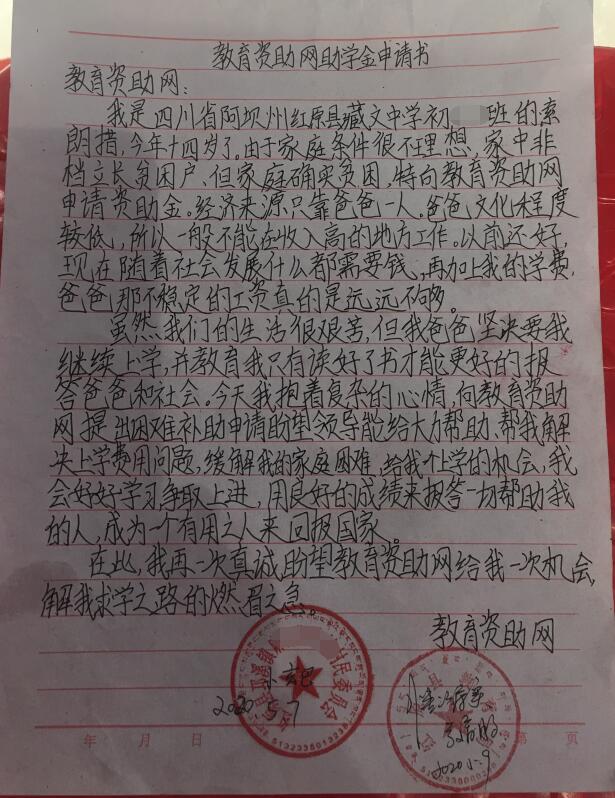 教育资助网助学金申请书
教育资助网：
我是四川省阿坝州红原县藏文中学初 班的索
朗措，今年十四岁了。由于家庭条件很不理想，家中非
档立长贫困户、但家庭确实贫困，特向教育资助网
申请资助金。经济来源只靠爸爸一人。爸爸文化程度
较低，所以一般不能在收入高的地方工作。以前还好，
现在随着社会发展什么都需要钱，再加上我的学费，
爸爸那不稳定的工资真的是远远不够。
虽然我们的生活很艰苦，但我爸爸坚决要我
继续上学，并教育我只有读好了书才能更好的报
答爸爸和社会。今天我抱着复杂的心情，向教育资助
网提出困难补助申请盼望领导能给大力帮助、帮我解
决上学费用问题，缓解我的家庭困难，给我个上学的机会，我
会好好学习争取上进，用良好的成绩来报答一切帮助我
的人，成为一个有用之人来回报国家。
在此，我再一次真诚盼望教育资助网给我一次机会，
解我求学之路的燃眉之急。
教育资助网
村民委员会
2020 5.7
2020.5.9
年 月 日 第 页